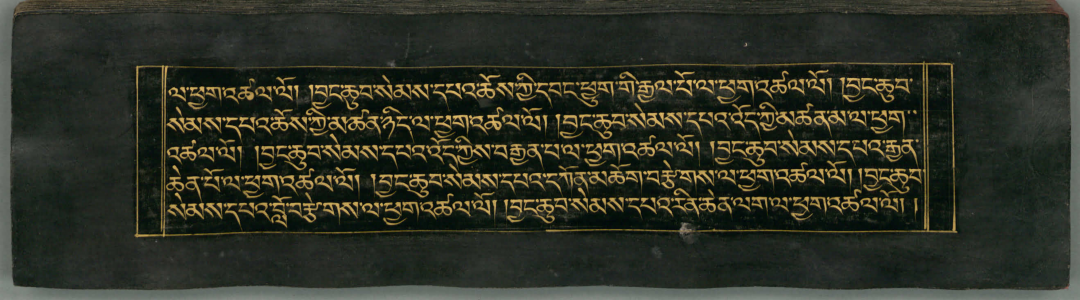 ལ་ཕྱག་འཚལ་ལོ། །བྱང་ཆུབ་སེམས་དཔའ་ཆོས་ཀྱི་དབང་ཕྱུག་གི་རྒྱལ་པོ་ལ་ཕྱག་འཚལ་ལོ། །བྱང་ཆུབ་
སེམས་དཔའ་ཆོས་ཀྱི་མཚན་ཉིད་ལ་ཕྱག་འཚལ་ལོ། །བྱང་ཆུབ་སེམས་དཔའ་འོད་ཀྱི་མཚན་མ་ལ་ཕྱག་
འཚལ་ལོ། །བྱང་ཆུབ་སེམས་དཔའ་འོད་ཀྱིས་བརྒྱན་པ་ལ་ཕྱག་འཚལ་ལོ། །བྱང་ཆུབ་སེམས་དཔའ་རྒྱན་
ཆེན་པོ་ལ་ཕྱག་འཚལ་ལོ། །བྱང་ཆུབ་སེམས་དཔའ་དཀོན་མཆོག་བརྩེགས་ལ་ཕྱག་འཚལ་ལོ། །བྱང་ཆུབ་
སེམས་དཔའ་སྤོབརྩེགས་ལ་ཕྱག་འཚལ་ལོ། །བྱང་ཆུབ་སེམས་དཔའ་རིན་ཆེན་ལག་ལ་ཕྱག་འཚལ་ལོ། །